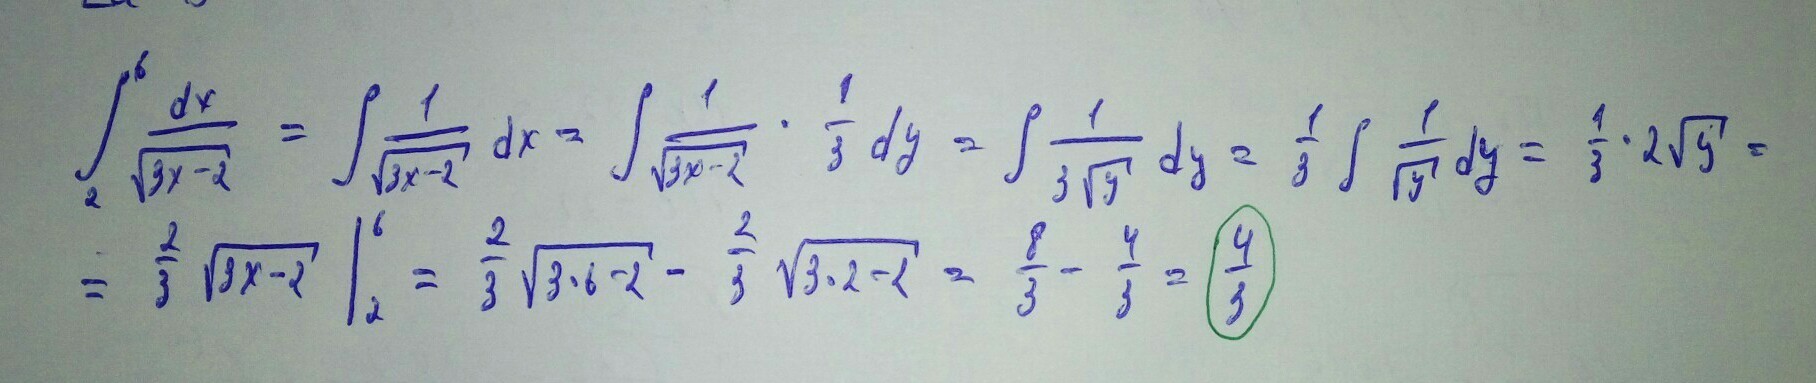 ∫₂⁶ dx/√(3x-2) = ∫ 1/√(3x-2) dx = ∫ 1/√(3x-2) · 1/3 dy = ∫ 1/(3√y) dy = 1/3 ∫ 1/√y dy = 1/3 · 2√y =
= 2/3 √(3x-2) |₂⁶ = 2/3 √(3·6-2) - 2/3 √(3·2-2) = 8/3 - 4/3 = 4/3